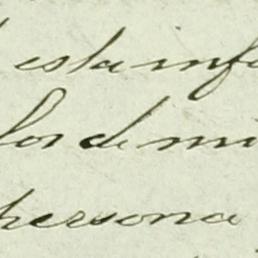 esta inf
los de mi
persona